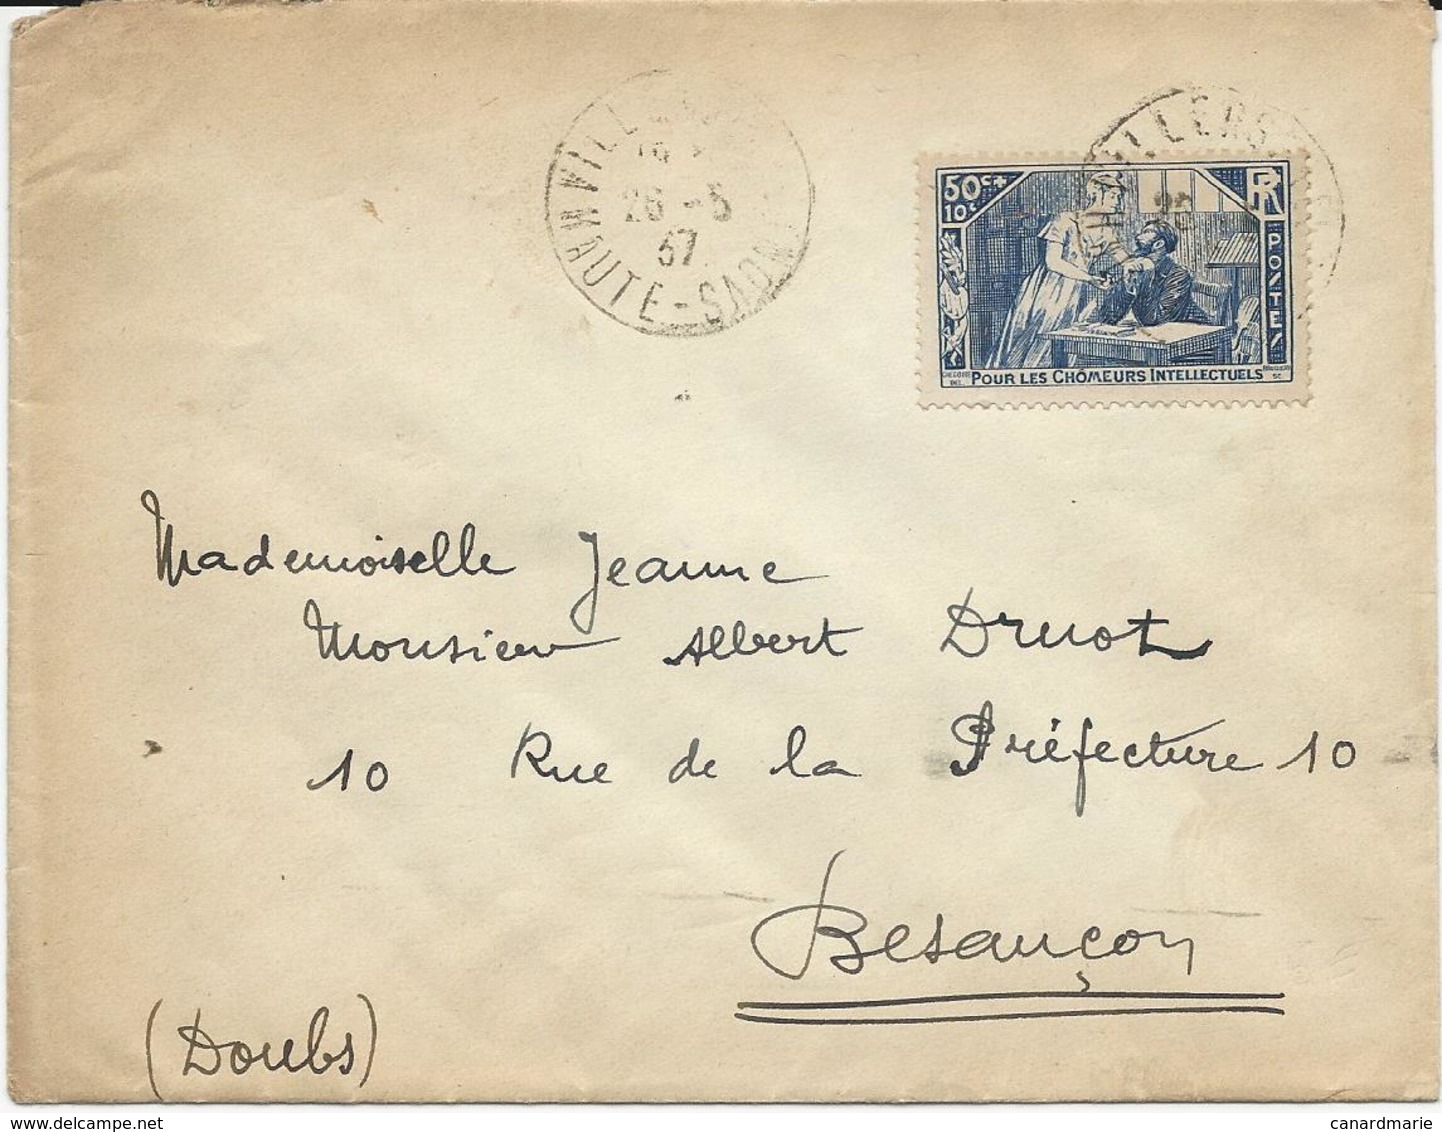 26 -5
37
HAUTE-SAONE
50c+
10c
RF
POSTES
POUR LES CHÔMEURS INTELLECTUELS
Mademoiselle Jeanne
Monsieur Albert Druot
10 Rue de la Préfecture 10
Besançon
(Doubs)
www.delcampe.net
canardmarie